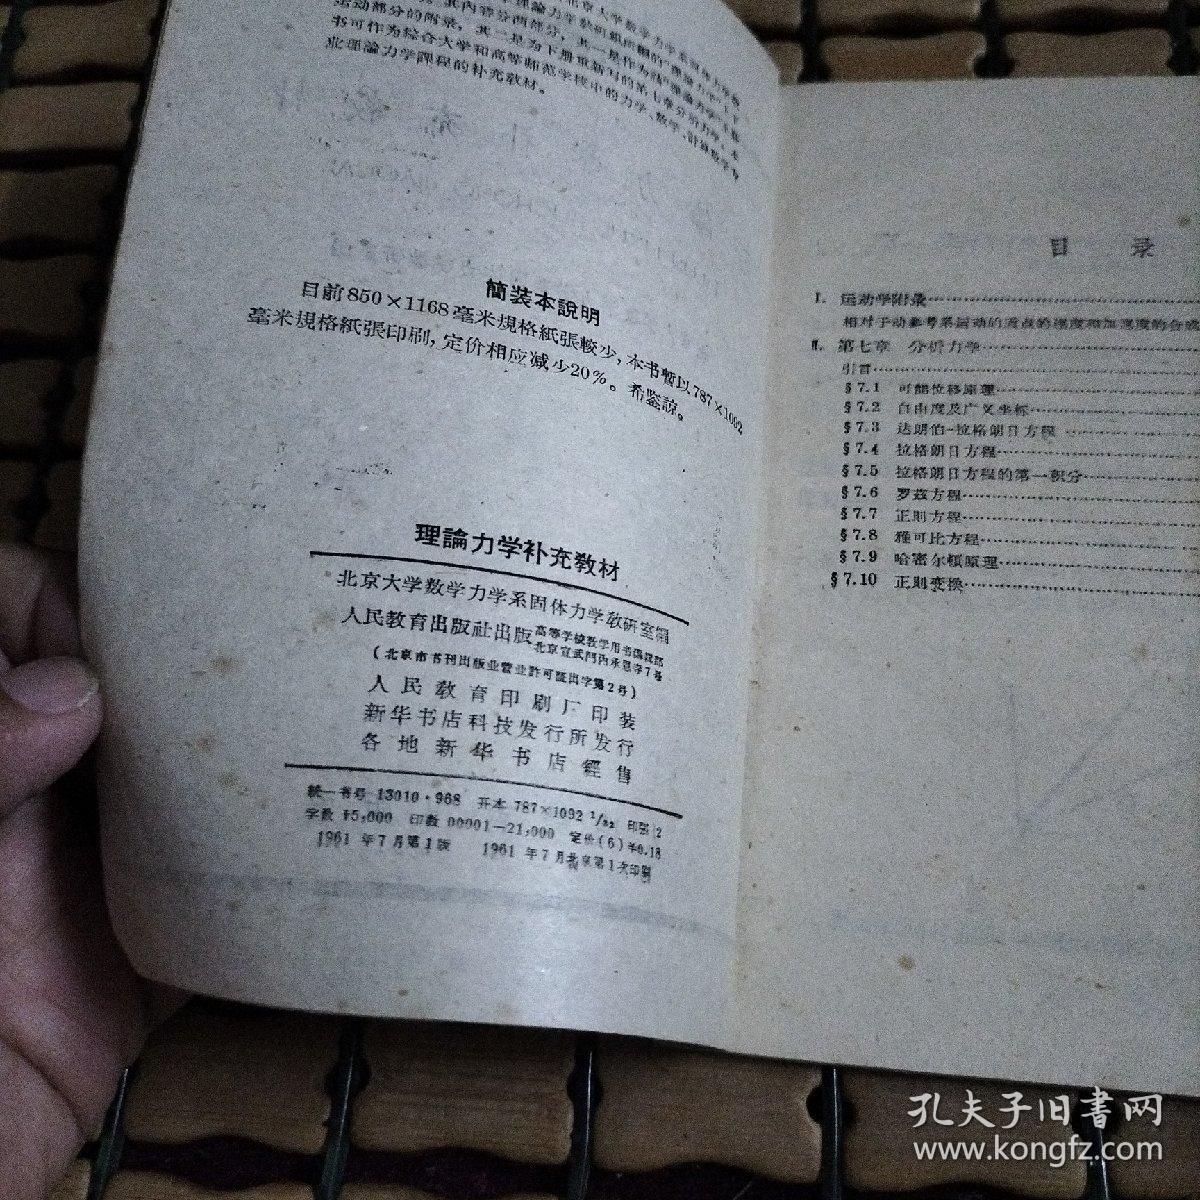 运动部分的附录，其二是为下册重新写的第七章分析力学。本
书可作为綜合大学和高等师范学校中的力学、数学、計算数学专
业理論力学課程的补充教材。
簡装本說明
目前850×1168毫米規格紙張較少，本书暫以787×1092
毫米規格紙張印刷，定价相应减少20%。希鉴諒。
理論力学补充教材
北京大学数学力学系固体力学教研室編
人民教育出版社出版
高等学校教学用书編輯部
北京宣武門內承恩寺7号
(北京市书刊出版业营业許可証出字第2号)
人民教育印刷厂印装
新华书店科技发行所发行
各地新华书店經售
統一书号 13010·968 开本 787×1092 1/32 印張 2
字数 45,000 印数 00001—21,000 定价(6)￥0.18
1961年7月第1版 1961年7月北京第1次印刷
目 录
I. 运动学附录
相对于动参考系运动的质点的速度和加速度的合成
II. 第七章 分析力学
引言
§7.1 可能位移原理
§7.2 自由度及广义坐标
§7.3 达朗伯-拉格朗日方程
§7.4 拉格朗日方程
§7.5 拉格朗日方程的第一积分
§7.6 罗兹方程
§7.7 正则方程
§7.8 雅可比方程
§7.9 哈密尔頓原理
§7.10 正则变换
孔夫子旧书网
www.kongfz.com